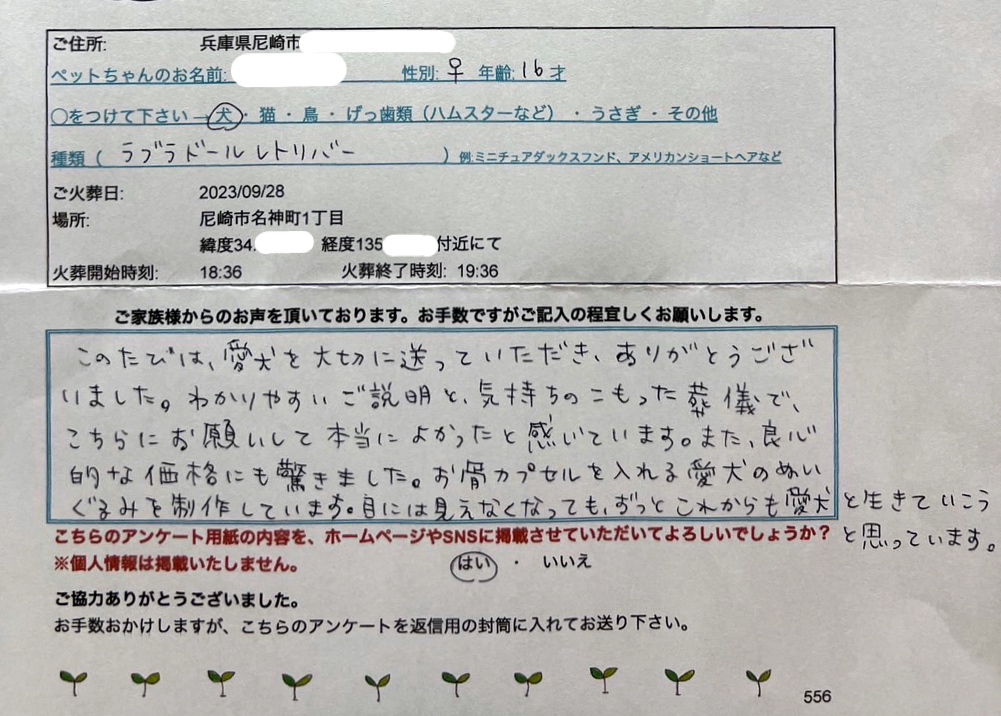 ご住所: 兵庫県尼崎市
ペットちゃんのお名前: 性別:♀ 年齢:16才
〇をつけて下さい→犬・猫・鳥・げっ歯類（ハムスターなど）・うさぎ・その他
種類（ラブラドールレトリバー）例:ミニチュアダックスフンド、アメリカンショートヘアなど
ご火葬日: 2023/09/28
場所: 尼崎市名神町1丁目
緯度34. 経度135 付近にて
火葬開始時刻: 18:36 火葬終了時刻: 19:36
ご家族様からのお声を頂いております。お手数ですがご記入の程宜しくお願いします。
このたびは、愛犬を大切に送っていただき、ありがとうござ
いました。わかりやすいご説明と、気持ちのこもった葬儀で、
こちらにお願いして本当によかったと感じています。また、良心
的な価格にも驚きました。お骨カプセルを入れる愛犬のぬい
ぐるみを制作しています。目には見えなくなっても、ずっとこれからも愛犬と生きていこう
と思っています。
こちらのアンケート用紙の内容を、ホームページやSNSに掲載させていただいてよろしいでしょうか？
※個人情報は掲載いたしません。 はい ・ いいえ
ご協力ありがとうございました。
お手数おかけしますが、こちらのアンケートを返信用の封筒に入れてお送り下さい。
556